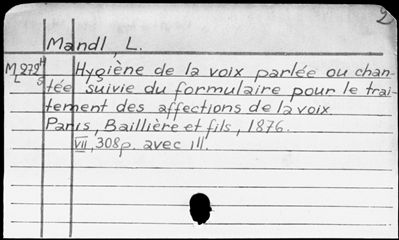 2
Mandl, L.
M 272 H Hygiène de la voix parlée ou chan-
L S tée suivie du formulaire pour le trai-
tement des affections de la voix.
Paris, Baillière et fils, 1876.
VII, 308p. avec ill.